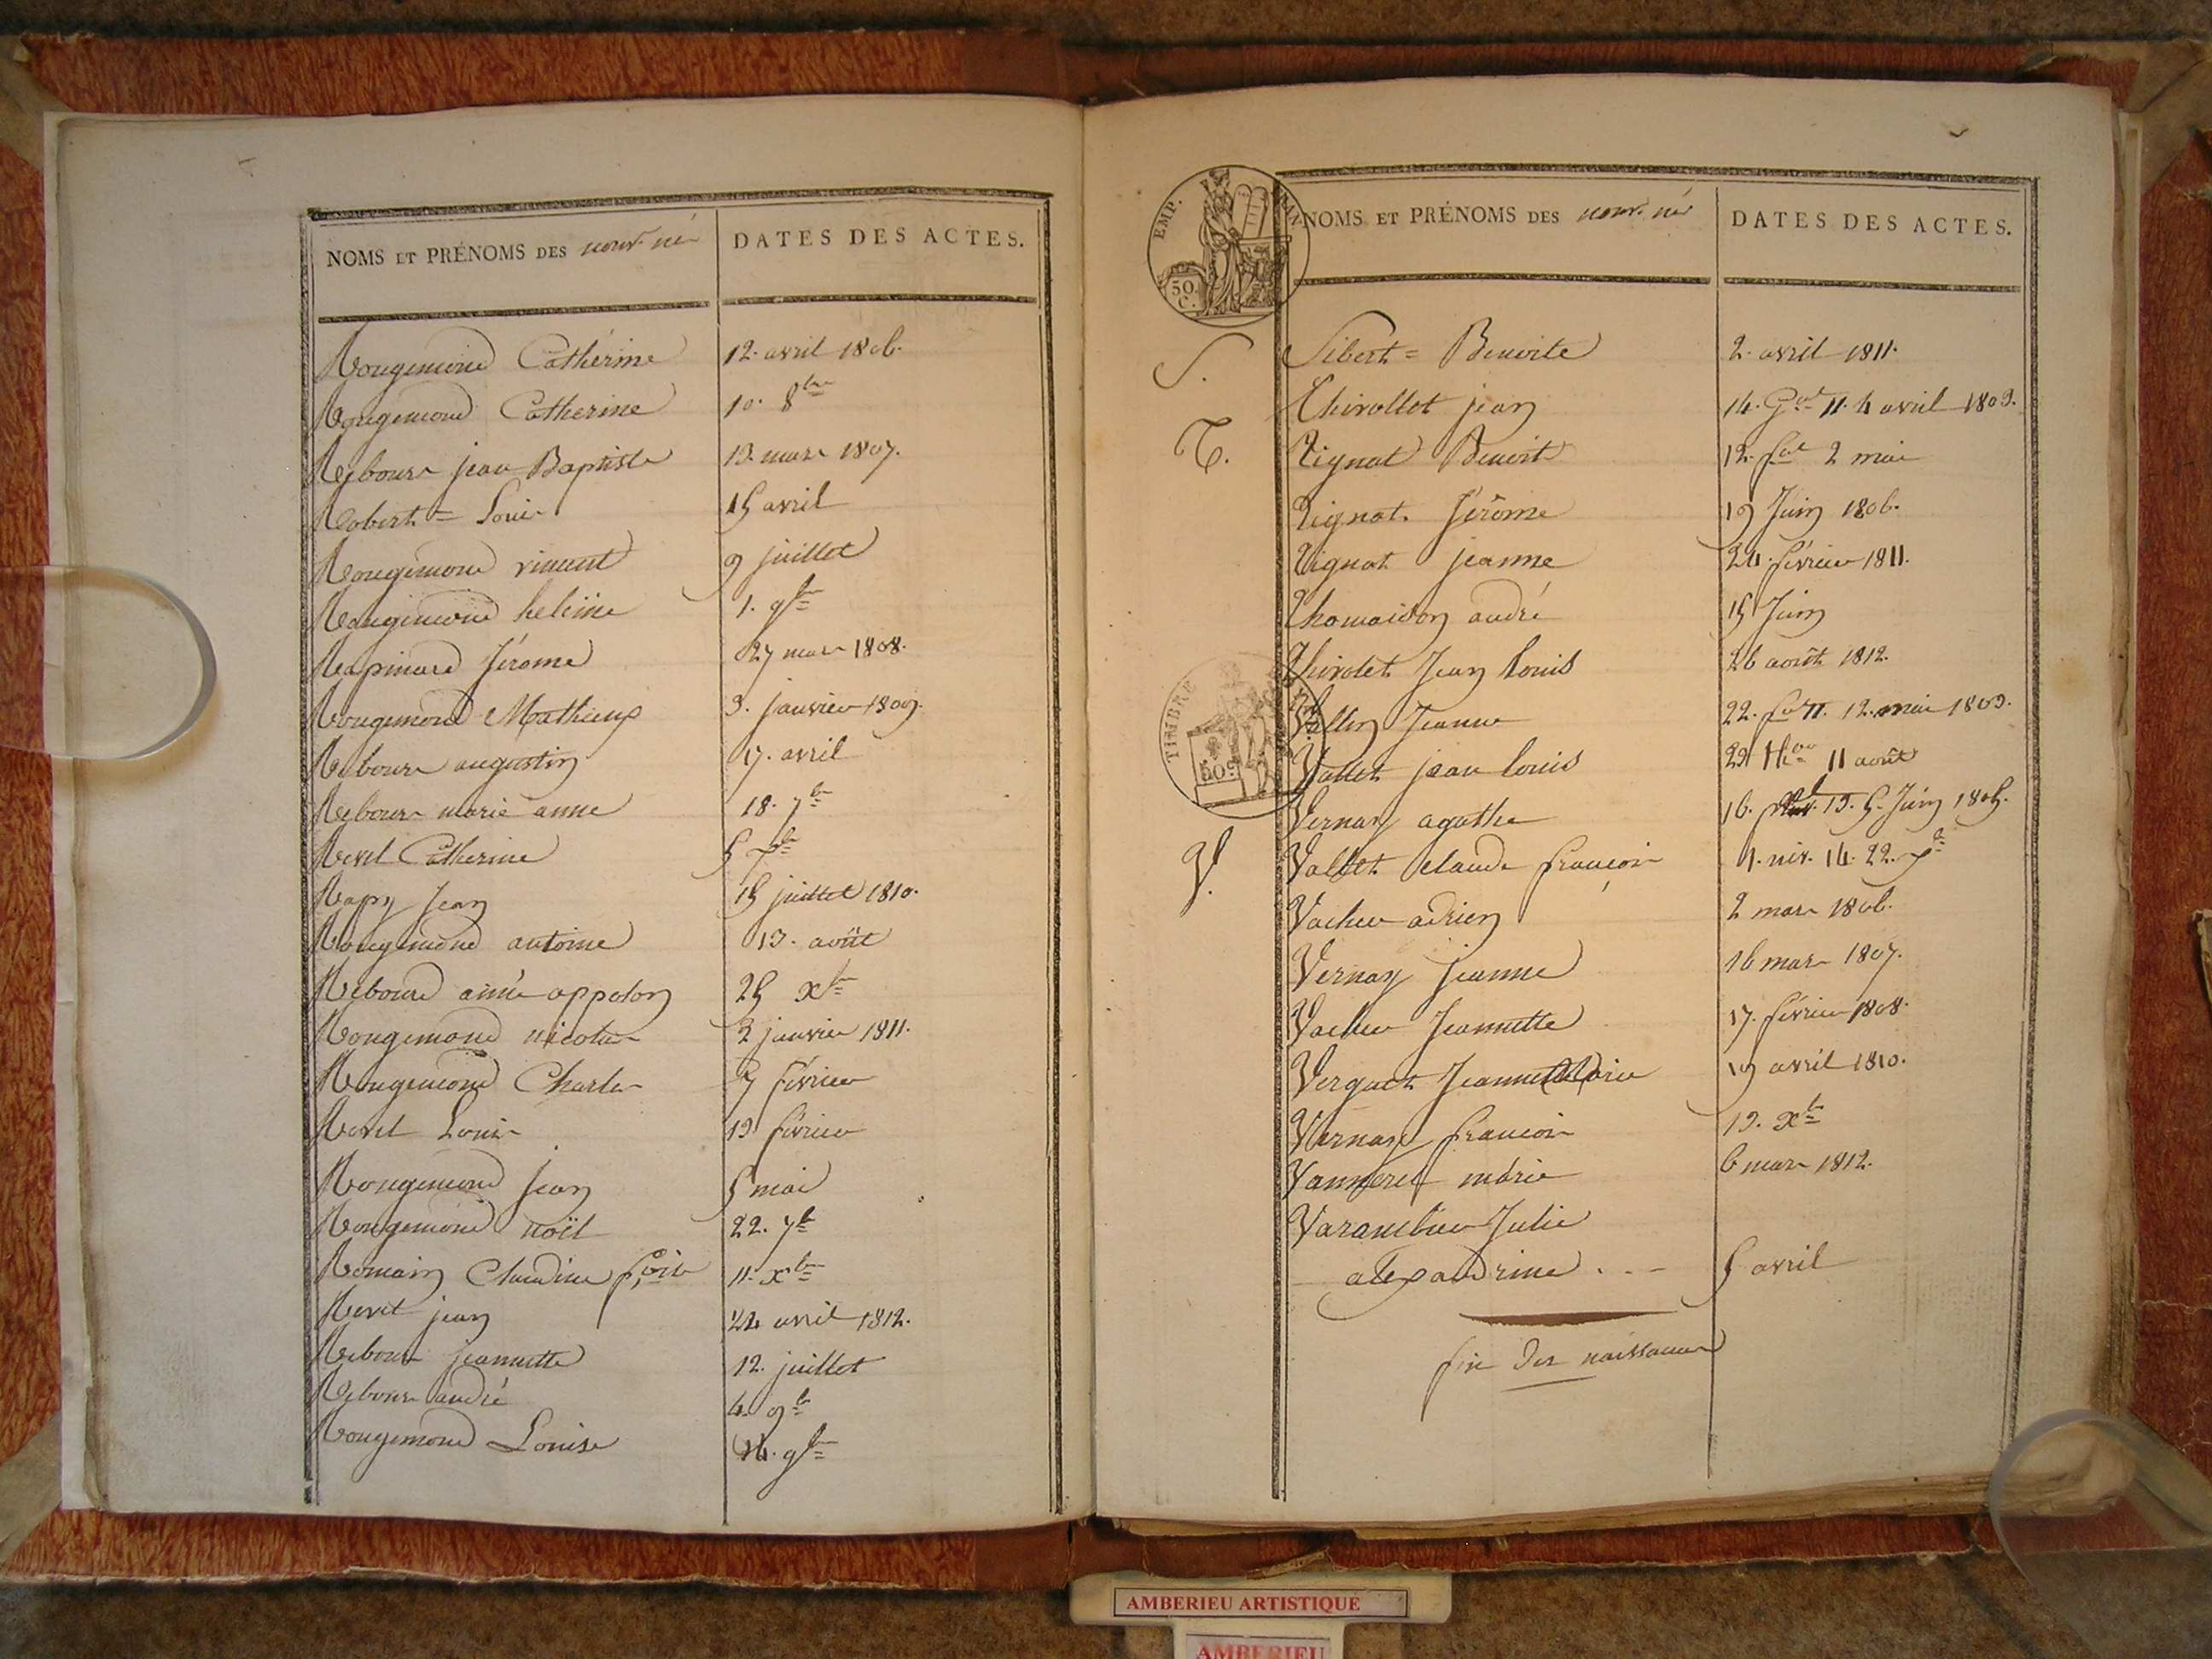 NOMS ET PRÉNOMS DES nouv. nés
DATES DES ACTES.
Rougemond Catherine 12. avril 1806.
Rougemond Catherine 10. 8bre
Rebours jean Baptiste 13. mars 1807.
Robert = Louis 15 avril
Rougemond vincent 9 juillet
Rougemond heleine 1. 9bre
Rapinard Jérome 27 mars 1808.
Rougemond Mathieux 3. janvier 1809.
Rebours augustin 17. avril
Rebours marie anne 18. 7bre
Revel Catherine 5 7bre
Rapy Jean 15 juillet 1810.
Rougemond antoine 13. août
Rebours aimé appolon 25 Xbre
Rougemond nicolas 2 janvier 1811.
Rougemond Charles 7 février
Revel Louis 13 février
Rougemond jean 5 mai
Rougemond noël 22. 7bre
Romain Claudine 11. Xbre
Revel jean 24 avril 1812.
Rebours jeannette 12. juillet
Rebours andré 4. 9bre
Rougemond Louise 14. 9bre
EMP.
50.
C.
NOMS ET PRÉNOMS DES nouv. nés
DATES DES ACTES.
S. Sibert = Benoite 2. avril 1811.
Thirollet jean 14. Gal 11. 4 avril 1803.
T. Tignat Benoit 12. 2 mai
Tignat Jérôme 19 Juin 1806.
Tignat jeanne 24. février 1811.
Thomaidon andré 15 Juin
Thirolet Jean Louis 26 août 1812.
TIMBRE
50 c
Vallin Jeanne 22. 11. 12. mai 1803.
Vallet jean Louis 23 11 août
Vernay agathe 16. 13. 5. Juin 1805.
V. Vallet claude francois 1. niv. 14. 22. Xbre
Vacher adrien 2 mars 1806.
Vernay jeanne 16 mars 1807.
Vacher Jeannette 17. février 1808.
Jeanne Marie 19 avril 1810.
Vernay francois 13. Xbre
marie 6 mars 1812.
Julie
alexandrine . . - 5 avril
fin des naissances
AMBERIEU ARTISTIQUE
AMBERIEU